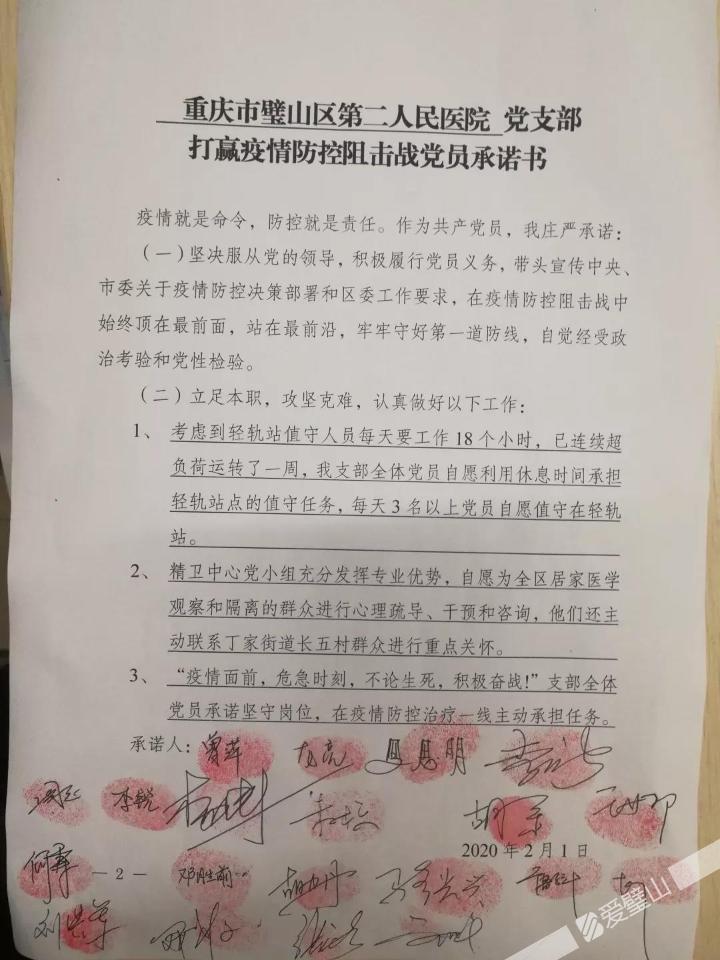 重庆市璧山区第二人民医院 党支部
打赢疫情防控阻击战党员承诺书
疫情就是命令，防控就是责任。作为共产党员，我庄严承诺：
（一）坚决服从党的领导，积极履行党员义务，带头宣传中央、
市委关于疫情防控决策部署和区委工作要求，在疫情防控阻击战中
始终顶在最前面，站在最前沿，牢牢守好第一道防线，自觉经受政
治考验和党性检验。
（二）立足本职，攻坚克难，认真做好以下工作：
1、 考虑到轻轨站值守人员每天要工作18个小时，已连续超
负荷运转了一周，我支部全体党员自愿利用休息时间承担
轻轨站点的值守任务，每天3名以上党员自愿值守在轻轨
站。
2、 精卫中心党小组充分发挥专业优势，自愿为全区居家医学
观察和隔离的群众进行心理疏导、干预和咨询，他们还主
动联系丁家街道长五村群众进行重点关怀。
3、 “疫情面前，危急时刻，不论生死，积极奋战！”支部全体
党员承诺坚守岗位，在疫情防控治疗一线主动承担任务。
承诺人：曾萍 龙亮
李锐
2020年2月1日
- 2 - 邓胜前
爱璧山